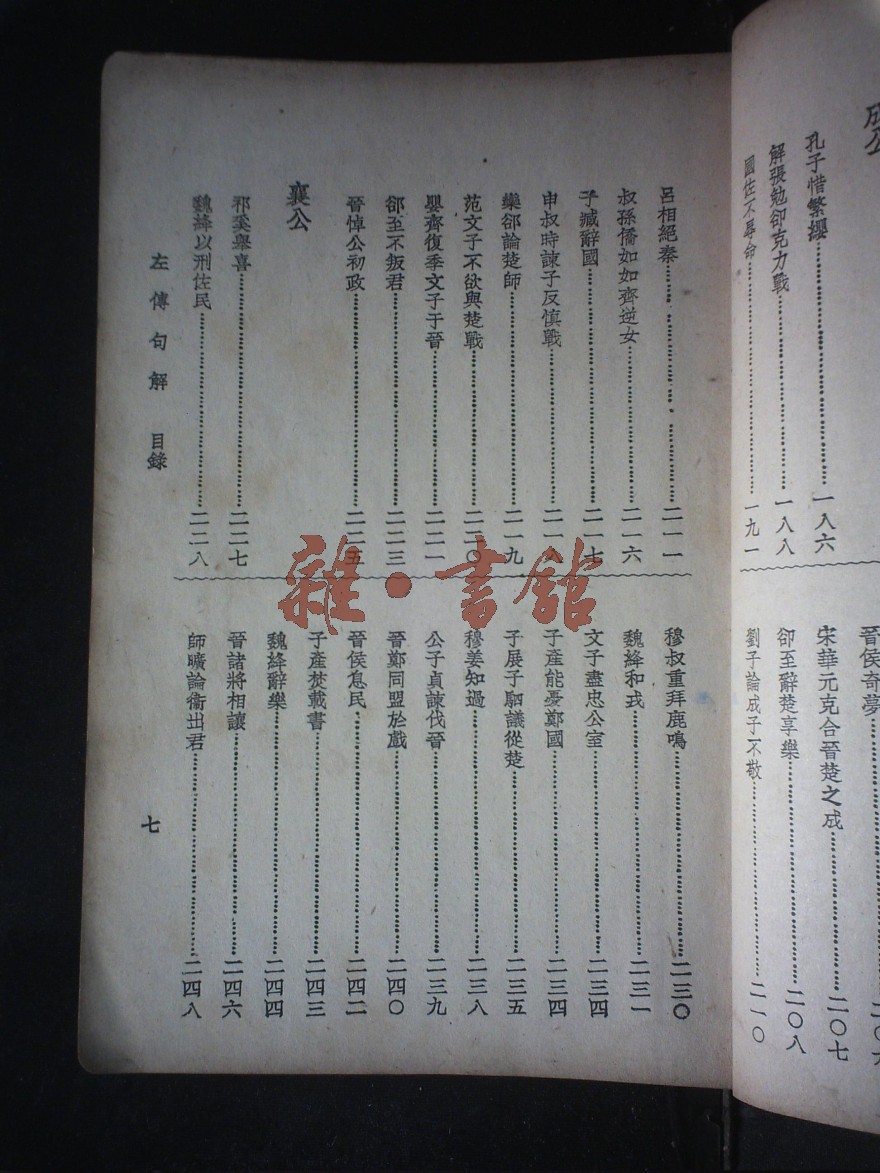 成公
孔子惜繁纓……一八六
解張勉卻克力戰……一八八
國佐不辱命……一九一
晉侯奇夢……二〇六
宋華元克合晉楚之成……二〇七
卻至辭楚享樂……二〇八
劉子論成子不敬……二一〇
呂相絕秦……二一一
叔孫僑如如齊逆女……二一六
子臧辭國……二一七
申叔時諫子反慎戰……二一八
欒卻論楚師……二一九
范文子不欲與楚戰……二二〇
嬰齊復季文子于晉……二二一
卻至不叛君……二二三
晉悼公初政……二二五
襄公
祁奚舉善……二二七
魏絳以刑佐民……二二八
穆叔重拜鹿鳴……二三〇
魏絳和戎……二三一
文子盡忠公室……二三四
子產能憂鄭國……二三四
子展子駟議從楚……二三五
穆姜知過……二三八
公子貞諫伐晉……二三九
晉鄭同盟於戲……二四〇
晉侯息民……二四二
子產焚載書……二四三
魏絳辭樂……二四四
晉諸將相讓……二四六
師曠論衞出君……二四八
左傳句解 目錄
七
雜·書館